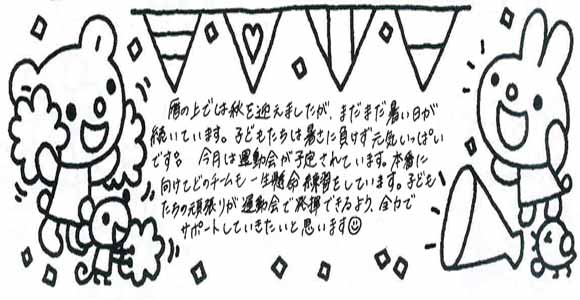 暦の上では秋を迎えましたが、まだまだ暑い日が
続いています。子どもたちは暑さに負けず元気いっぱい
です。今月は運動会が予定されています。本番に
向けてどのチームも一生懸命練習をしています。子ども
たちの頑張りが運動会で発揮できるよう、全力で
サポートしていきたいと思います☺